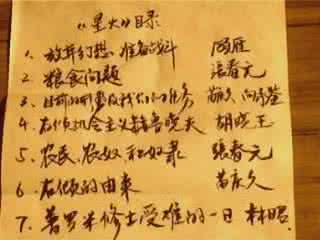 《星火》目录
1、放弃幻想，准备战斗 顾雁
2、粮食问题 張春元
3、目前的形势及我们的任务 苗庆久、向承鉴
4、右傾机会主义赫鲁晓夫 胡晓王
5、农民、农奴和奴隶 張春元
6、右傾的由来 苗庆久
7、普罗米修士受难的一日 林昭